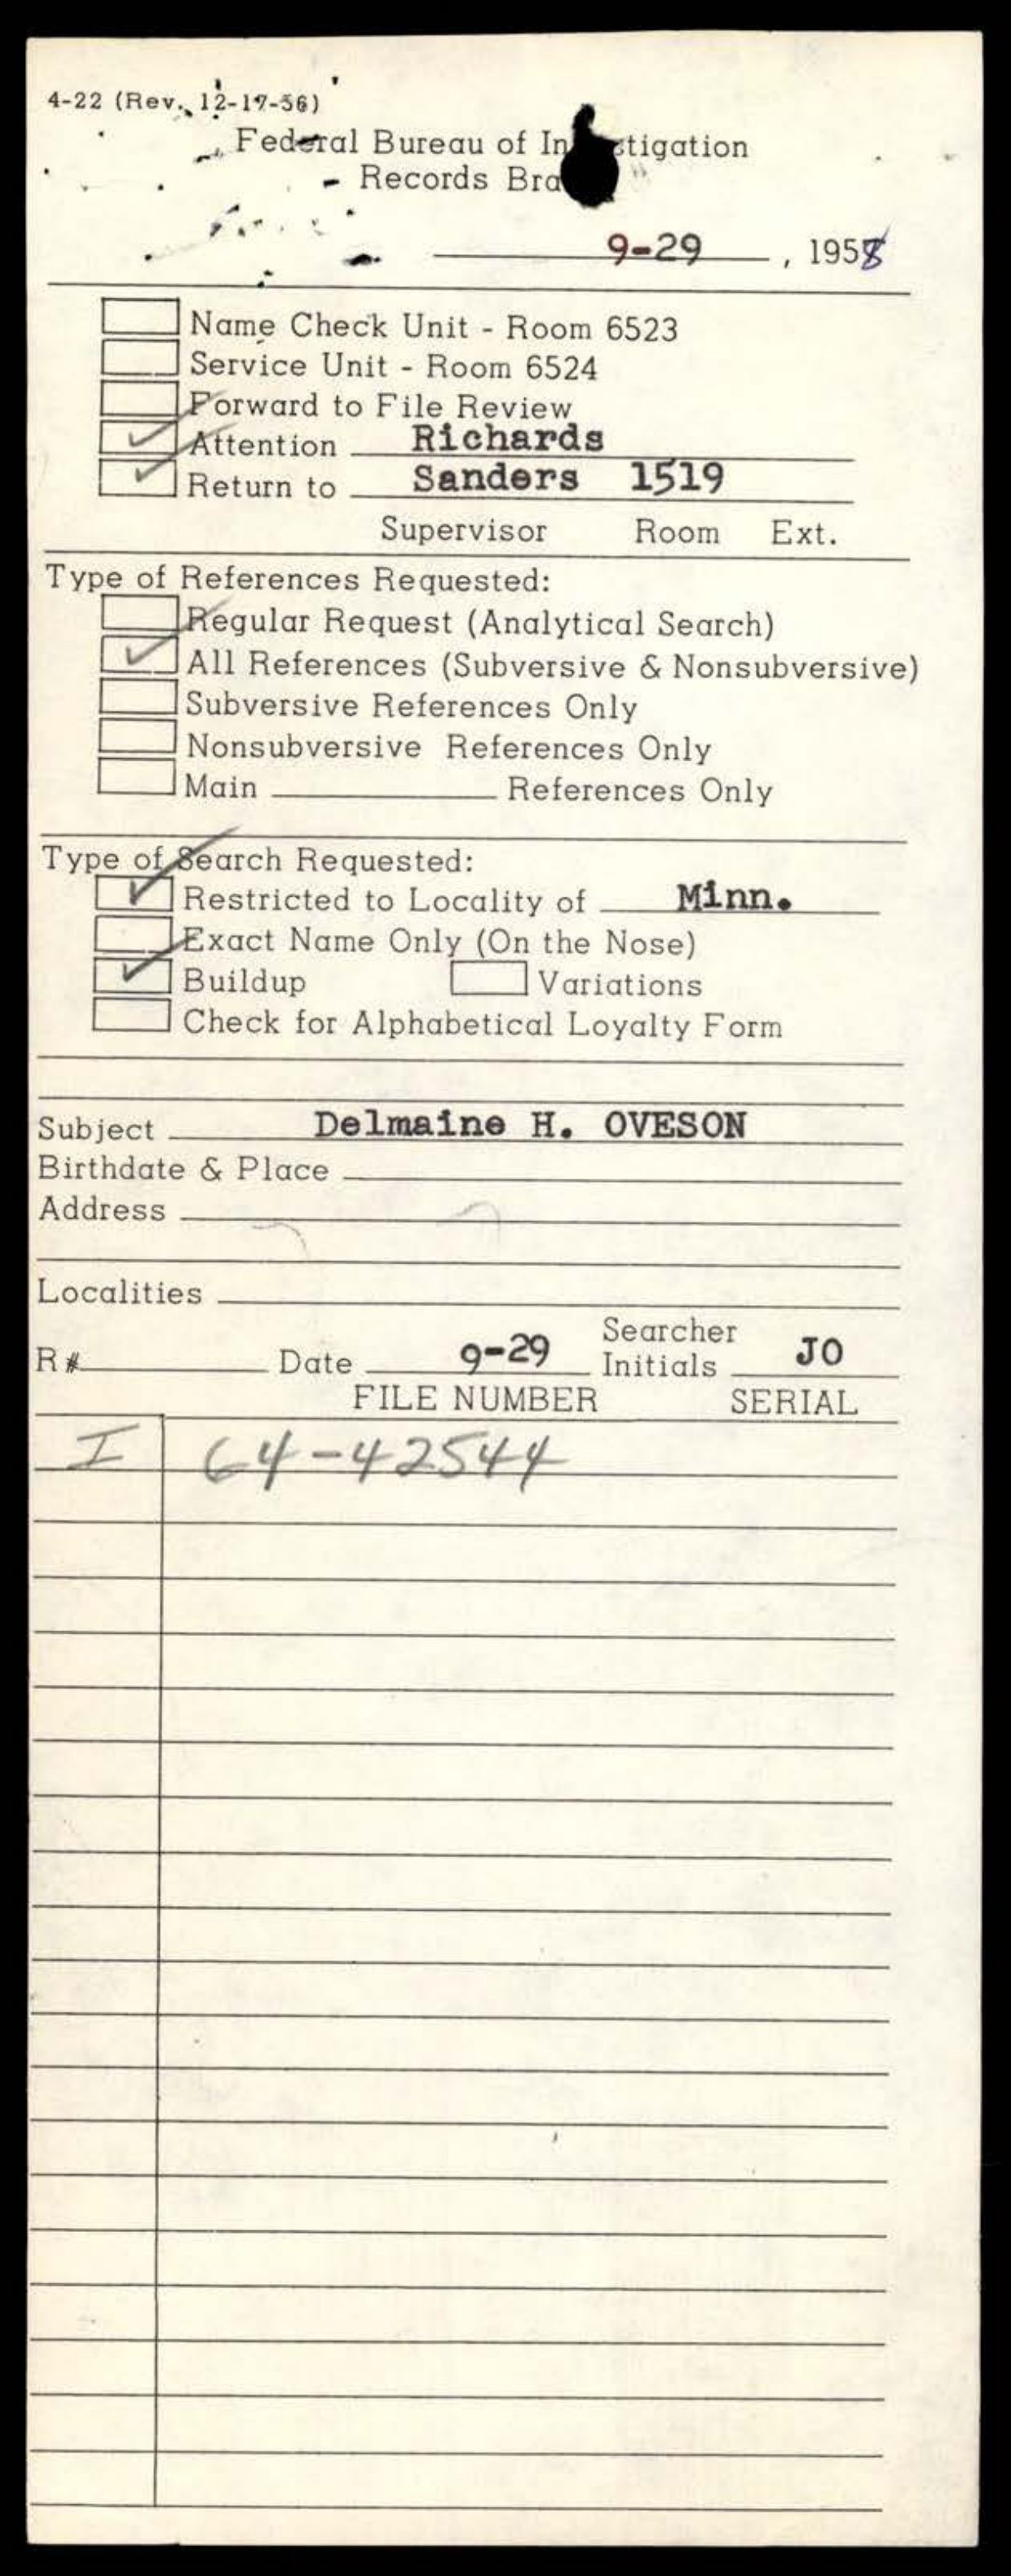 4-22 (Rev. 12-17-56)
Federal Bureau of In stigation
- Records Bra
9-29, 1958
Name Check Unit - Room 6523
Service Unit - Room 6524
Forward to File Review
Attention Richards
Return to Sanders 1519
Supervisor Room Ext.
Type of References Requested:
Regular Request (Analytical Search)
All References (Subversive & Nonsubversive)
Subversive References Only
Nonsubversive References Only
Main References Only
Type of Search Requested:
Restricted to Locality of Minn.
Exact Name Only (On the Nose)
Buildup Variations
Check for Alphabetical Loyalty Form
Subject Delmaine H. OVESON
Birthdate & Place
Address
Localities
R# Date 9-29 Searcher Initials JO
FILE NUMBER SERIAL
I 64-42544